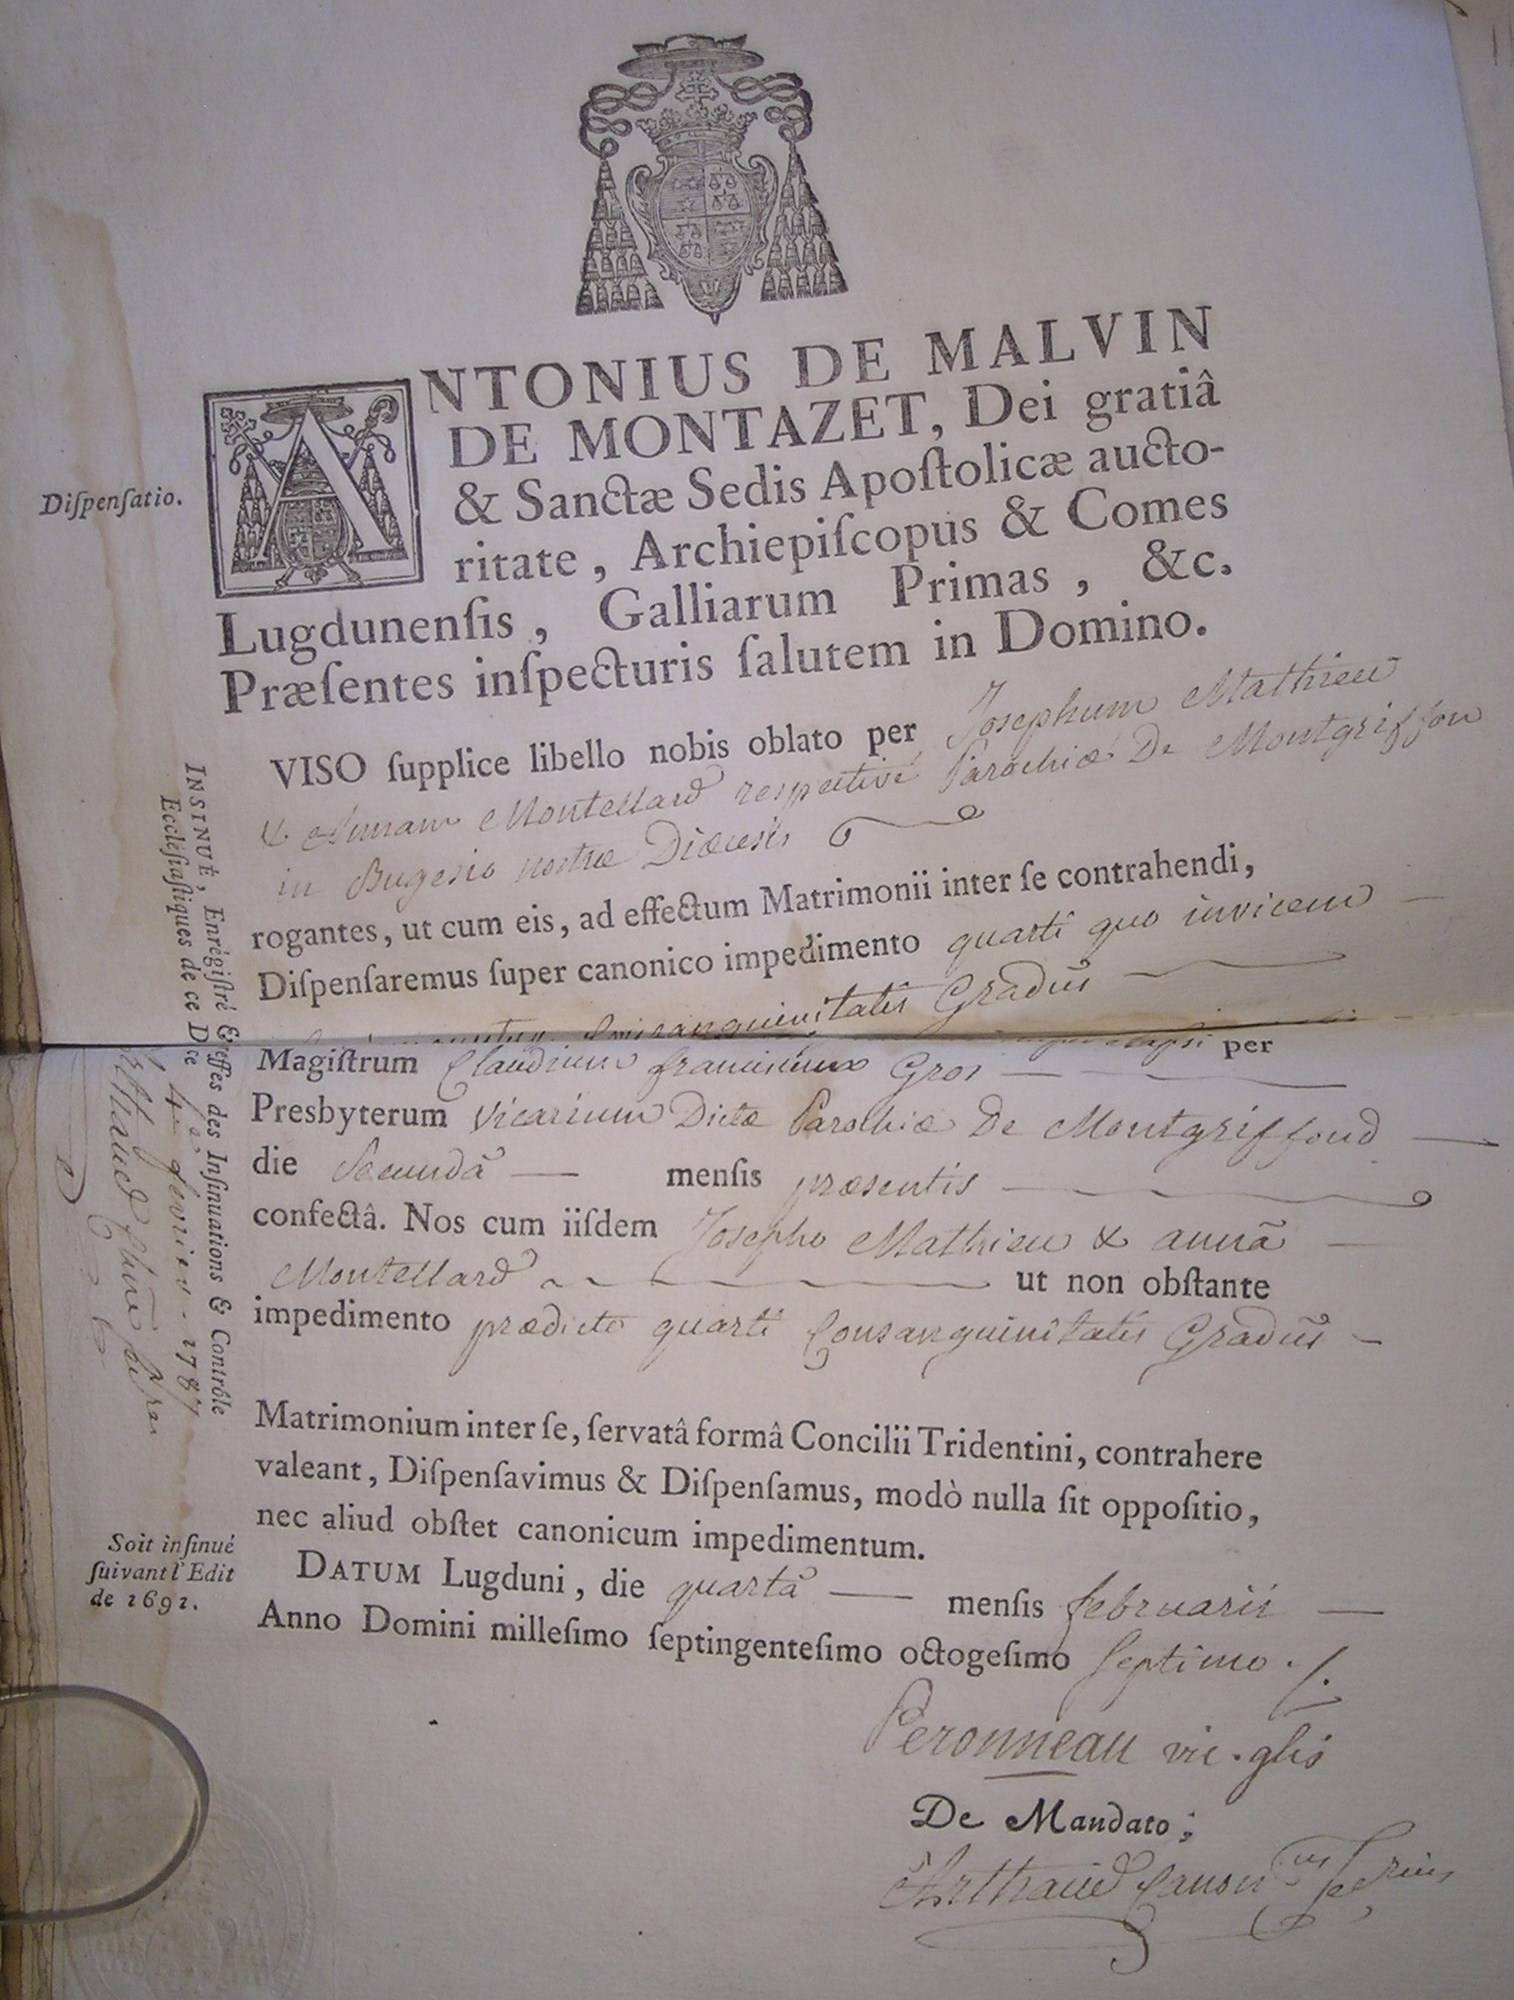 Diſpenſatio.
ANTONIUS DE MALVIN
DE MONTAZET, Dei gratiâ
& Sanctæ Sedis Apoſtolicæ aucto-
ritate, Archiepiſcopus & Comes
Lugdunenſis, Galliarum Primas, &c.
Præſentes inſpecturis ſalutem in Domino.
VISO ſupplice libello nobis oblato per Josephum Mathieu
& Annam Montellard respectivé Parochiæ De Montgriffon
in Bugesio nostræ Diœcesis
rogantes, ut cum eis, ad effectum Matrimonii inter ſe contrahendi,
Diſpenſaremus ſuper canonico impedimento quarti quo invicem
Consanguinitatis Gradûs
elapsi per
Magiſtrum Claudium franciscum Gros
Presbyterum Vicarium Dictæ Parochiæ De Montgriffond
die Secundâ menſis præsentis
confectâ. Nos cum iiſdem Josepho Mathieu & annâ
Montellard ut non obſtante
impedimento prædicto quarti Consanguinitatis Gradûs
Matrimonium inter ſe, ſervatâ formâ Concilii Tridentini, contrahere
valeant, Diſpenſavimus & Diſpenſamus, modò nulla ſit oppoſitio,
nec aliud obſtet canonicum impedimentum.
DATUM Lugduni, die quartâ menſis februarii
Anno Domini milleſimo ſeptingenteſimo octogeſimo septimo ./.
Peronneau vic. glis
De Mandato;
Arthaud
INSINUÉ, Enrégiſtré Greffes des Inſinuations & Contrôle
Eccléſiaſtiques de ce Dſe 4 fevrier 1787
Soit inſinué
ſuivant l'Edit
de 1691.